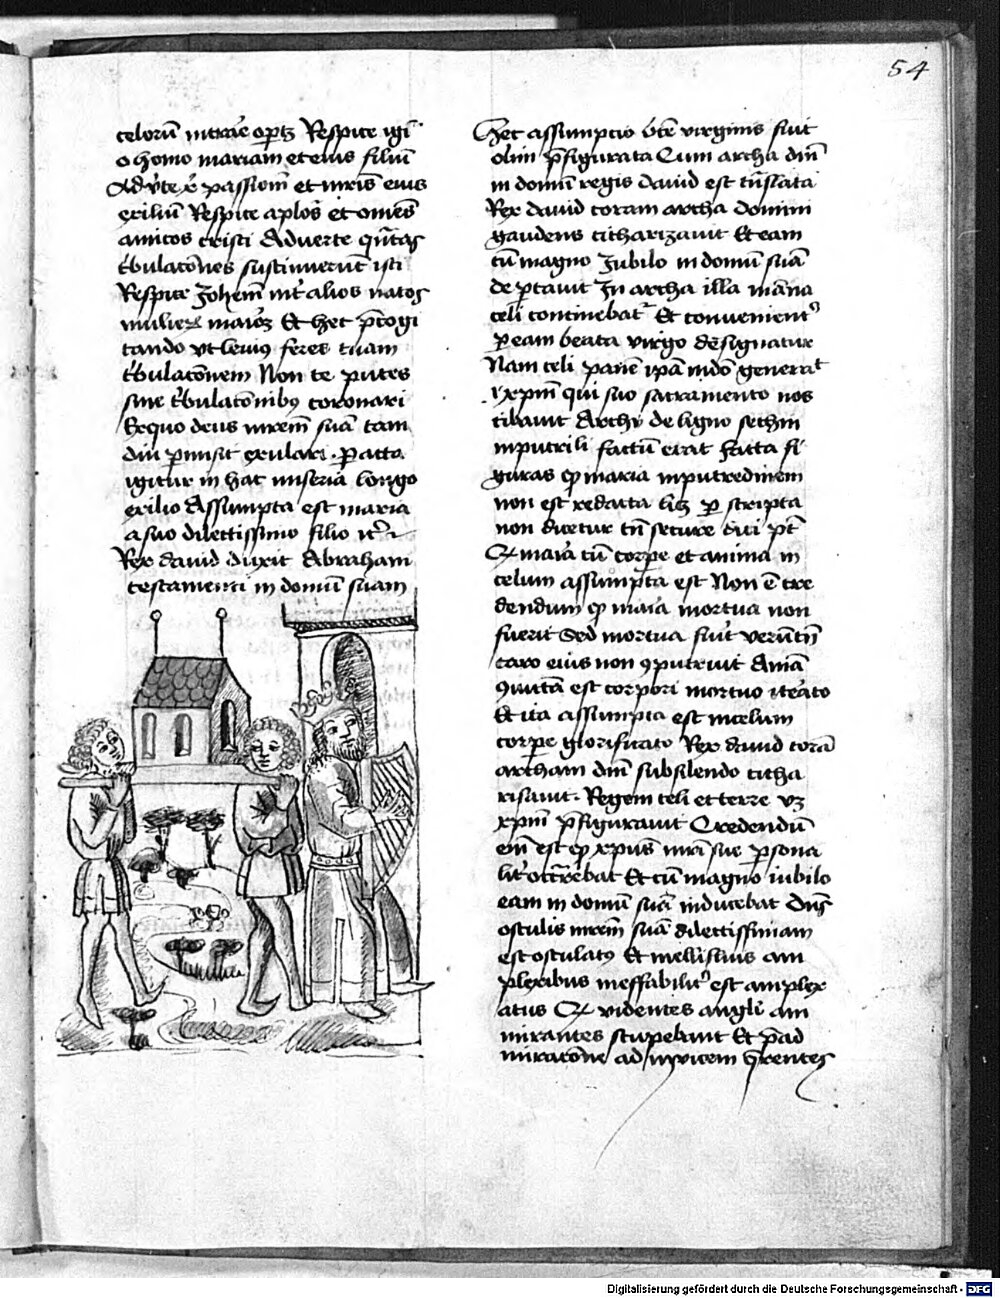 54
celorū intrāe oportꝫ Respice igit̄
o homo mariam et eius filiū
Adv̄te xp̄i passionē et mr̄is eius
exiliū Respice aplōs et omēs
amicos cristi Adverte qn̄tas
t'bulacōnes sustinuerūt isti
Respice Johēm int' alios natos
mulieꝝ maiorē Et hec p̄cogi
tando ut levius feres tuam
t'bulacōnem Non te putes
sine t'bulacōnibꝰ coronari
Exquo deus mr̄em suā tam
diu ꝑmisit exulari. ꝑacto
igitur in hac miseria longo
exilio Assumpta est maria
a suo dilectissimo filio
Rex david duxit Abraham
testamenti in domū suam
Hec assumpcio bt̄e virginis fuit
olim p̄figurata Cum archa dn̄i
in domū regis david est tn̄slata
Rex david coram archa domini
gaudens citharizavit Et eam
cū magno Jubilo in domū suā
deportavit In archa illa māna
celi continebat' Et convenient'
ꝑ eam beata virgo designatur
Nam celi panē ipā mūdo generat
xp̄m qui suo sacramento nos
cibavit Archa de ligno sethim
inputribili factū erat facta fi
guras qꝫ maria inputredinem
non est redacta licꝫ ꝑ scripta
non docetur tn̄ secure dici pt̄
Qꝫ maria cū corpe et anima in
celum assumpta est Non ē cre
dendum qꝫ maria mortua non
fuerit Sed mortua fuit verūtn̄
caro eius non ꝯputruit Aniā
ꝯiuncta est corpori mortuo iterato
Et ita assumpta est in celum
corpe glorificato Rex david corā
archam dn̄i subsilendo citha
risavit. Regem celi et terre vꝫ
xp̄m p̄figuravit Credendū
eni est qꝫ xp̄us mr̄i sue ꝑsona
lit' occurrebat Et cū magno iubilo
eam in domū suā inducebat Dn̄s
osculis mr̄em suā dilectissimam
est osculatꝰ Et mellifluis am
plexibus ineffabilit' est amplex
atus Qꝫ videntes angli am
mirantes stupebant Et p̄ ad
miracōne ad invicem q̄rentes
Digitalisierung gefördert durch die Deutsche Forschungsgemeinschaft - DFG